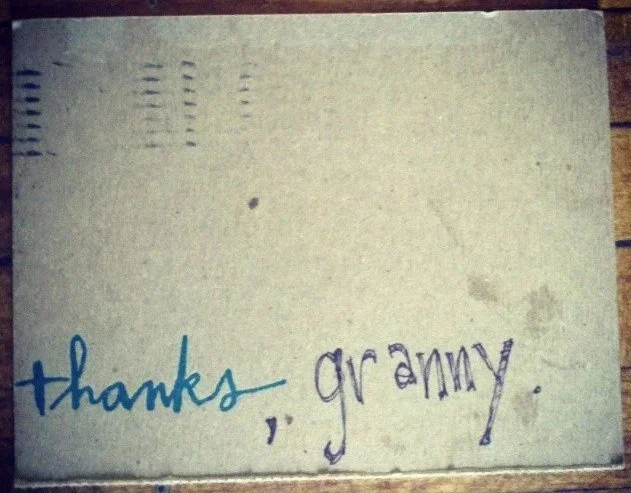 thanks, granny.